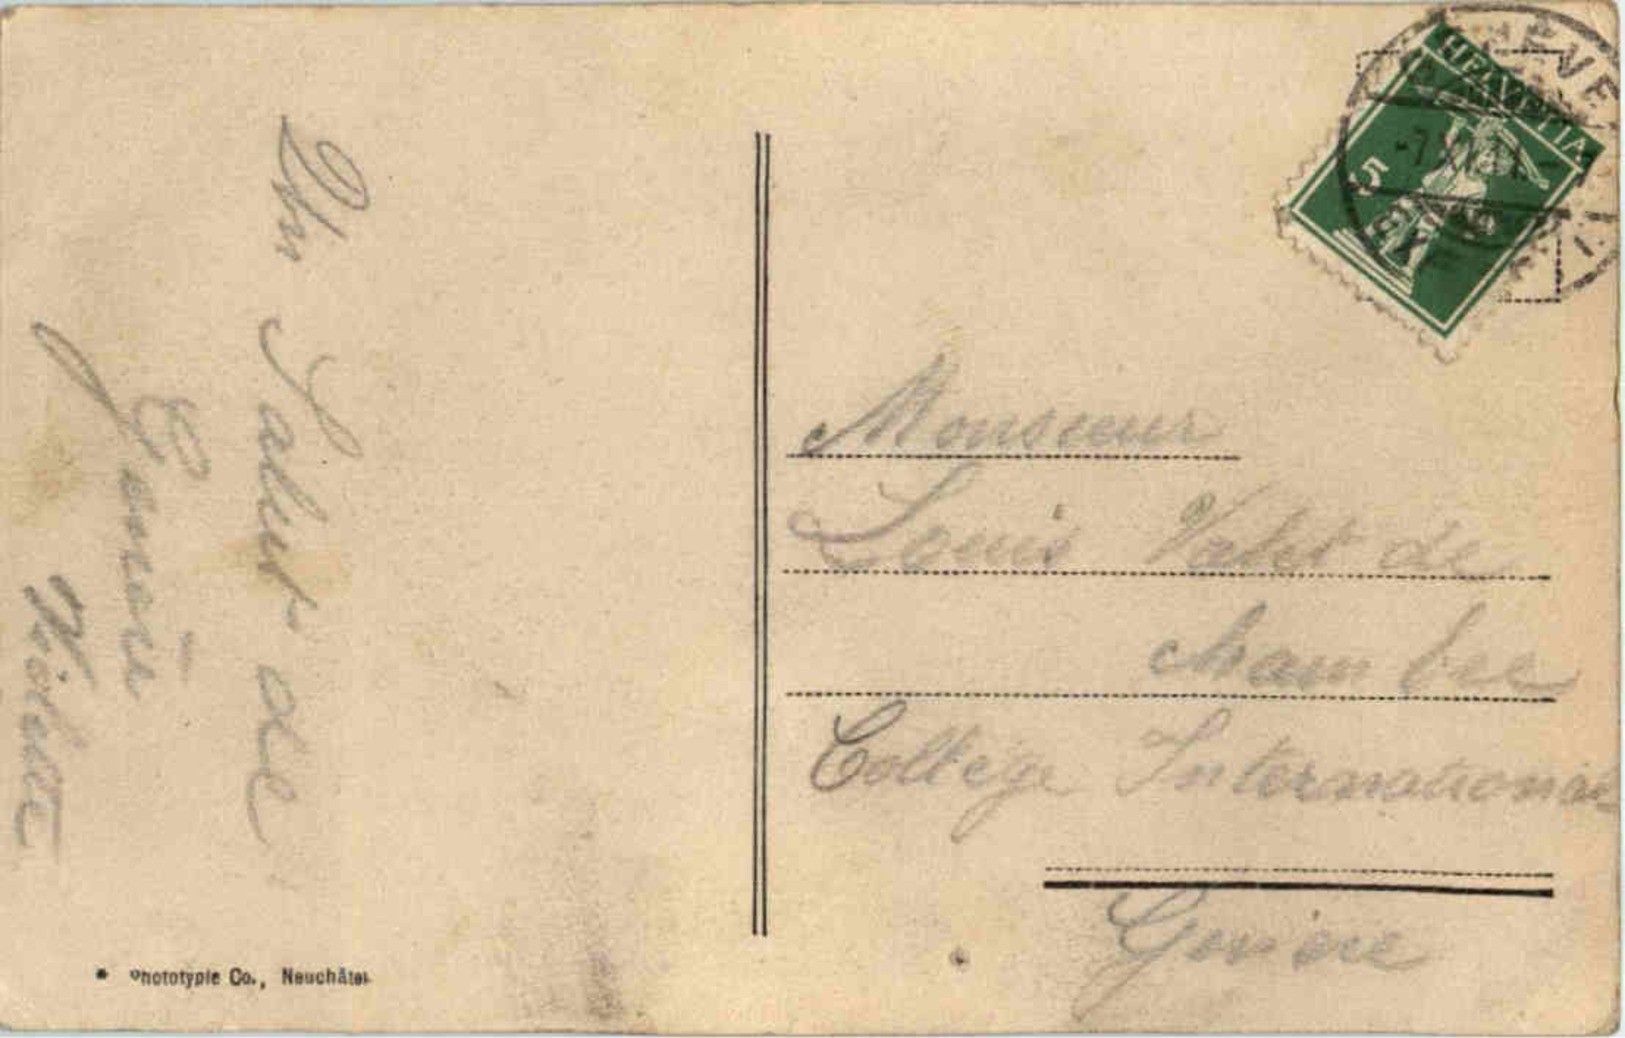 Un Salut de
Genève
Violette
Monsieur
Louis Valet de
chambre
Collège International
Genève
HELVETIA
5
GENÈVE
Phototypie Co., Neuchâtel